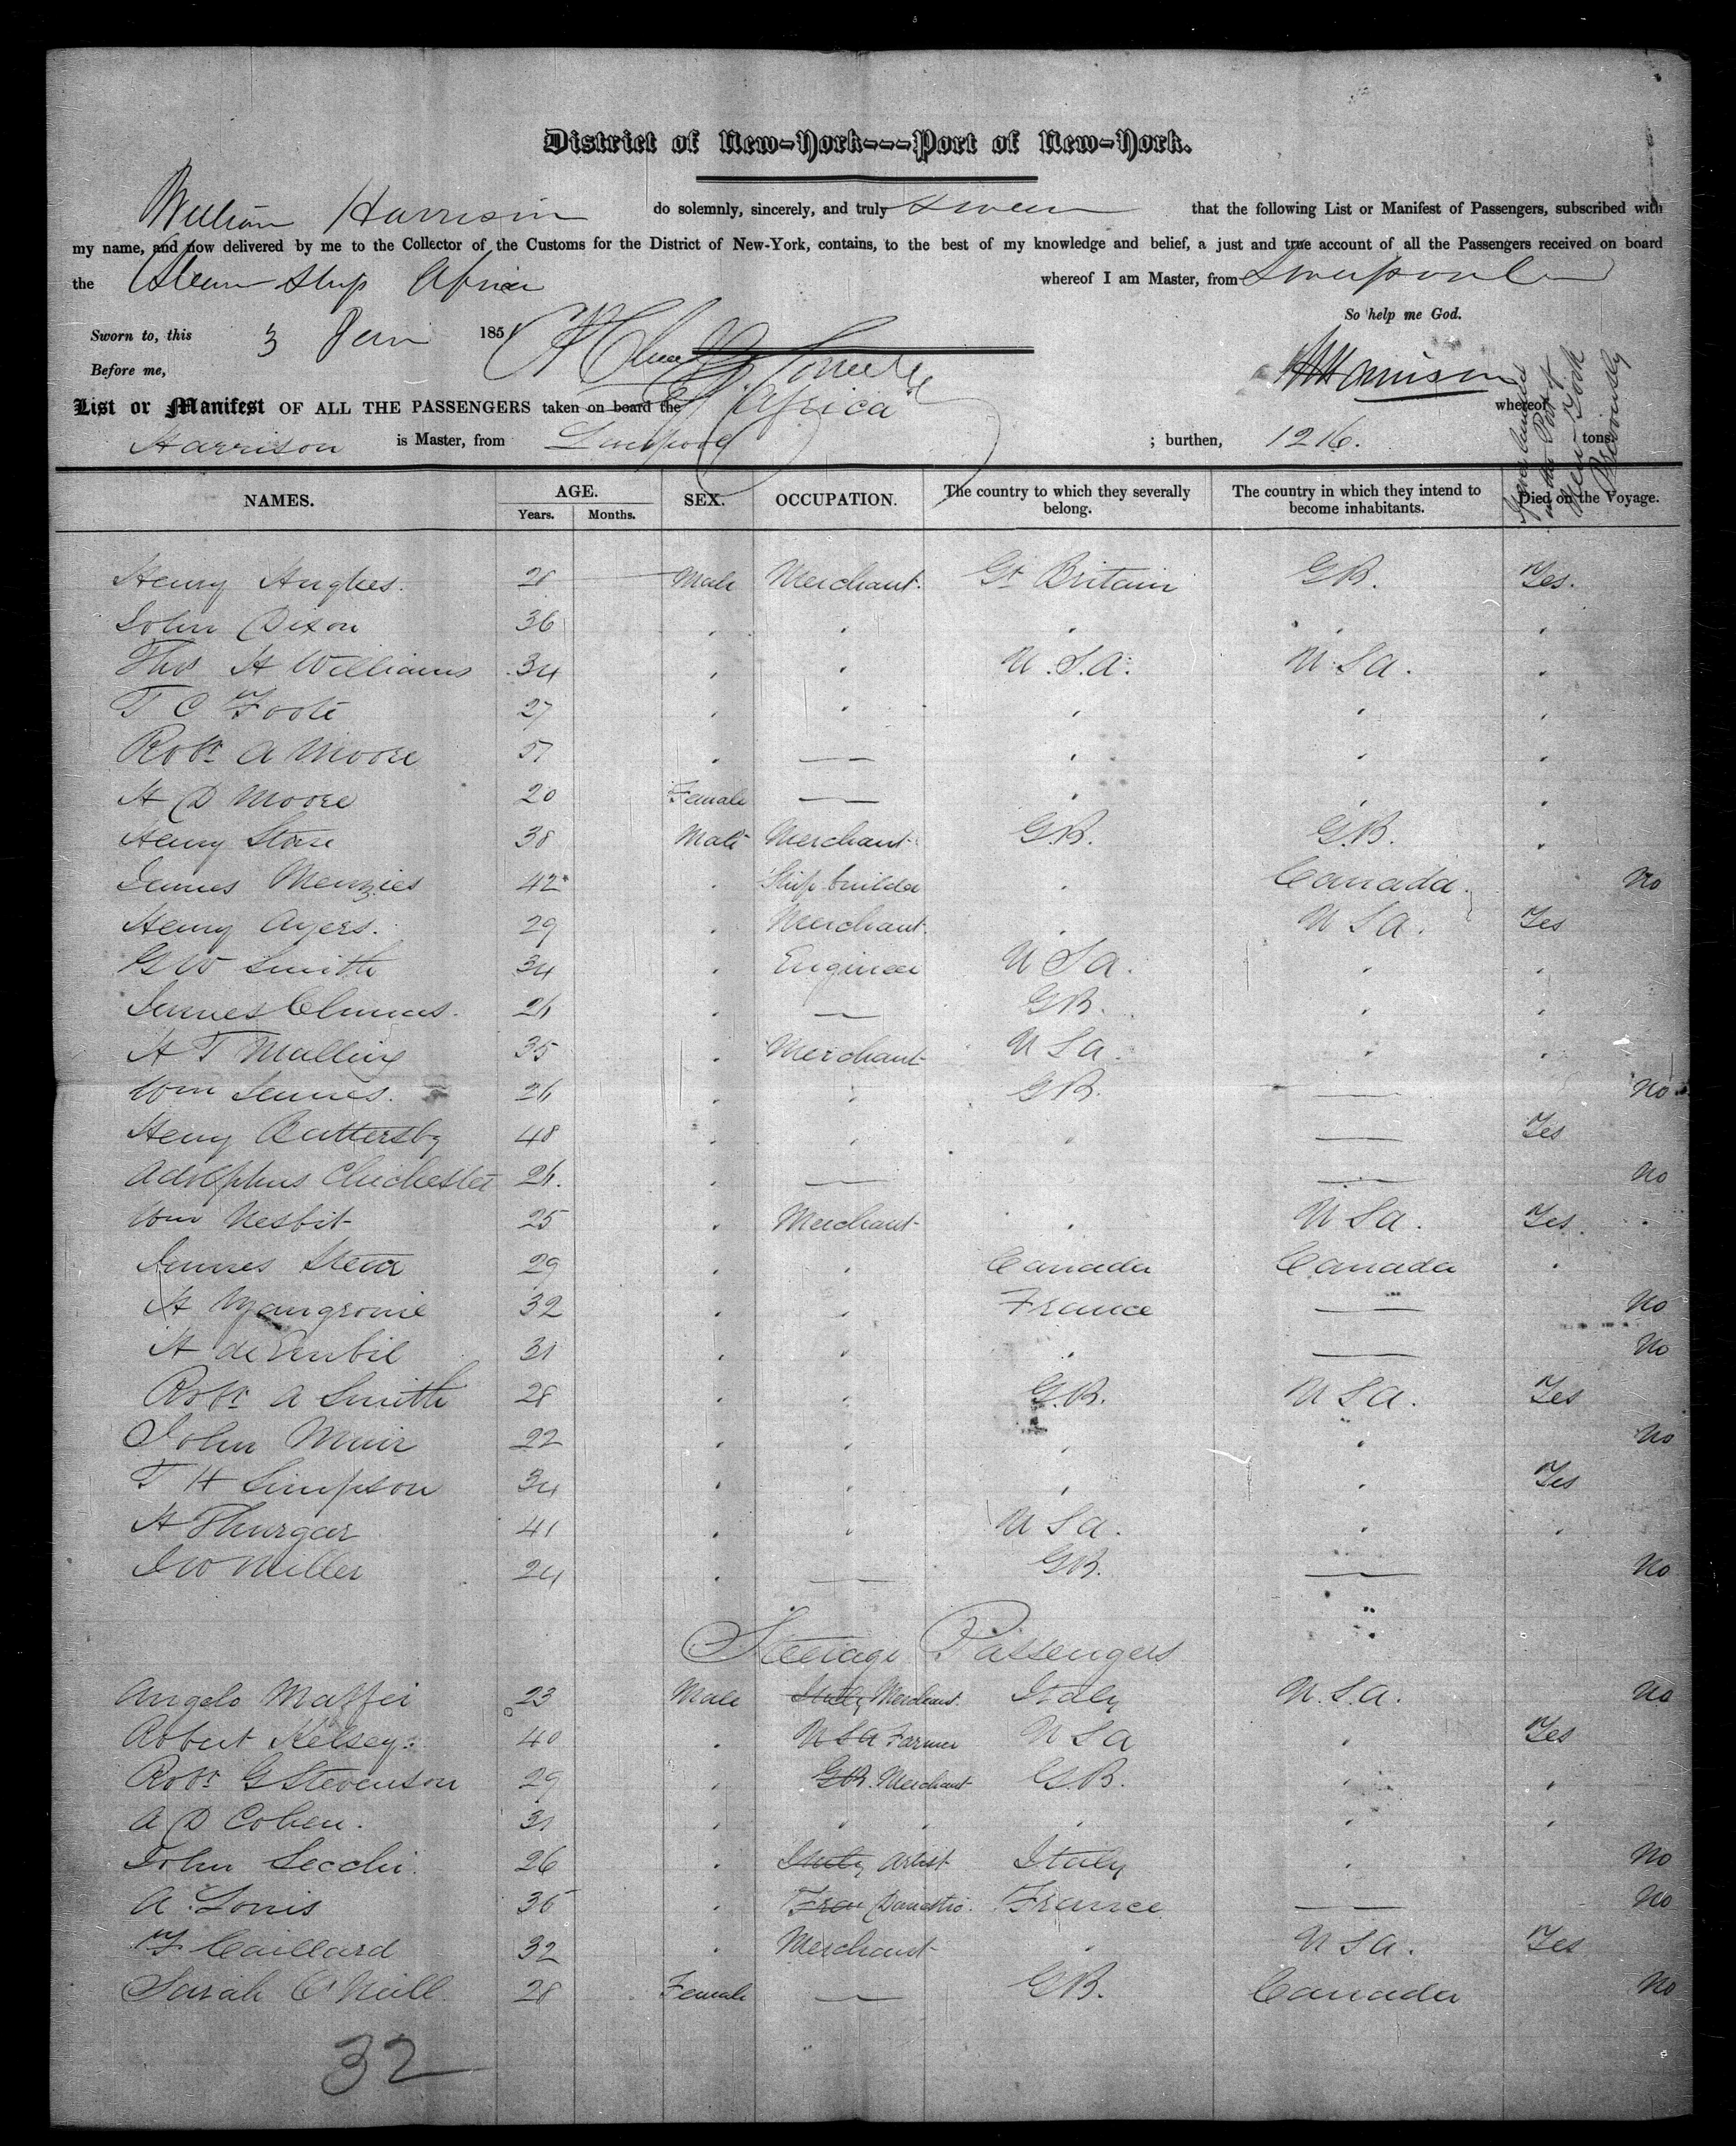 District of New-York---Port of New-York.
William Harrison do solemnly, sincerely, and truly swear that the following List or Manifest of Passengers, subscribed with
my name, and now delivered by me to the Collector of the Customs for the District of New-York, contains, to the best of my knowledge and belief, a just and true account of all the Passengers received on board
the Steam Ship Africa whereof I am Master, from Liverpool
So help me God.
Sworn to, this 3 Jan 1851
Before me,
W Harrison
List or Manifest OF ALL THE PASSENGERS taken on board the "Africa" whereof
Harrison is Master, from Liverpool ; burthen, 1216. tons
in the Port of New York Previously
NAMES. AGE. Years. Months. SEX. OCCUPATION. The country to which they severally belong. The country in which they intend to become inhabitants. Died on the Voyage.
Henry Hughes. 28 Male Merchant. Gt Britain GB. Yes.
John Dixon 36 " " " " "
Thos H Williams 34 " " U.S.A. U.S.A. "
T C Foote 27 " " " " "
Robt A Moore 57 " — " " "
H D Moore 20 Female — " " "
Henry Stone 38 Male Merchant G.B. G.B. "
James Menzies 42 " Ship builder " Canada. No
Henry Ayers. 29 " Merchant. " U S A. Yes
G W Smith 34 " Engineer U S A. " "
James 26 " — GB. " "
H T Mulling 35 " Merchant U S A. " "
Wm James. 26 " " GB. — No
Henry Buttersby 48 " " " — Yes
Adolphus Chichester 26. " — — No
Wm Nesbit 25 " Merchant " U S A. Yes
James Stear 29 " " Canada Canada "
H 32 " " France — No
H de 31 " " " — No
Robt A Smith 28 " " G.B. U S A. Yes
John Muir 22 " " " " No
T H Simpson 34 " " " " Yes
H Thurgar 41 " " U S A. " "
J W Miller 24 " — GB. — No
Steerage Passengers
Angelo Maffei 23 Male Italy Merchant. Italy U.S.A. No
Robert Kelsey. 40 " U S A Farmer U S A " Yes
Robt G Stevenson 29 " G.B. Merchant G.B. " "
A D Cohen. 31 " " " " "
John Secchi. 26 " Italy Artist Italy " No
A. Louis 36 " Fran Domestic. France — No
F. Caillard 32 " Merchant " U S A. Yes
Sarah O'Neill 28 Female — GB. Canada No
32